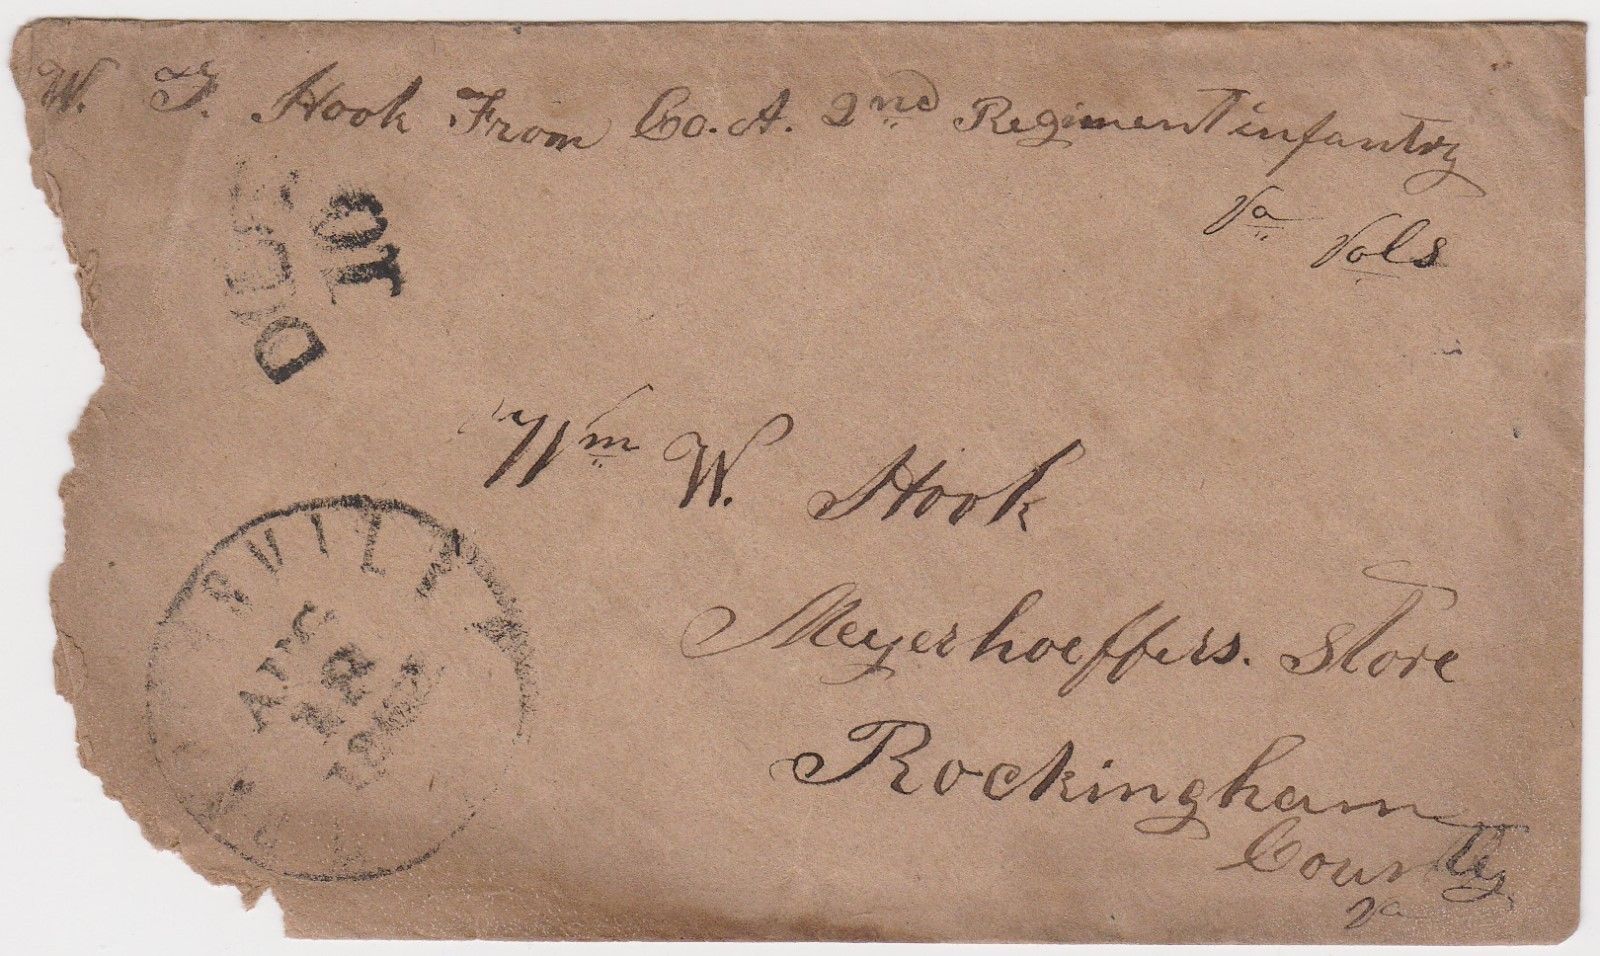 W. F. Hook From Co. A. 2nd Regiment infantry
Va Vols
DUE
10
Wm W. Hook
Meyerhoeffers. Store
Rockingham
County
Va
AUG